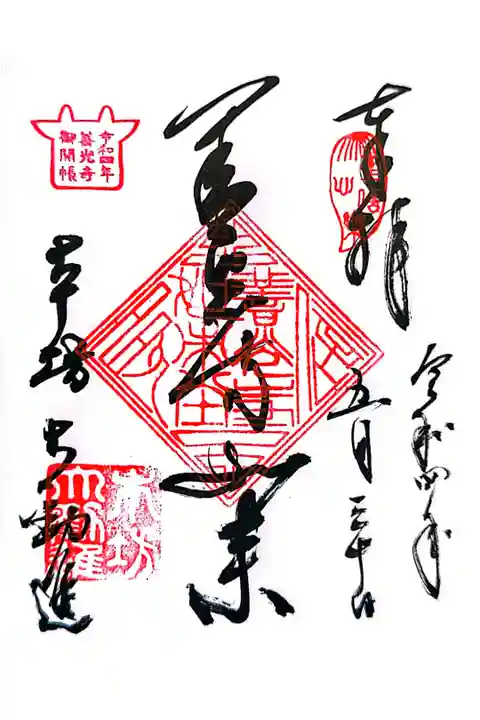 奉拝
令和四年
五月三十日
善光寺如来
令和四年
善光寺
御開帳
本坊 大勧進
本坊